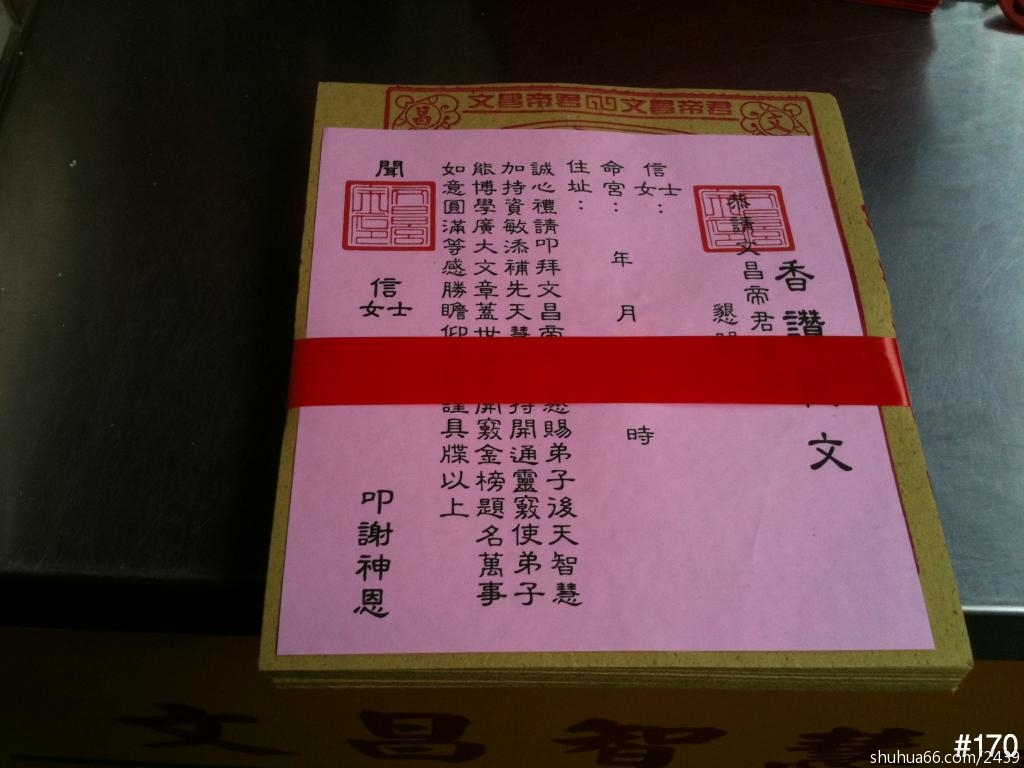 文昌帝君 文昌帝君
昌
文
香讚
文
恭請文昌帝君
懇
信士女：
命宮： 年 月 時
住址：
誠心禮請叩拜文昌帝
賜弟子後天智慧
加持資敏添補先天慧
持開通靈竅使弟子
能博學廣大文章蓋世
開竅金榜題名萬事
如意圓滿等感勝瞻仰
謹具牒以上
聞
信士女
叩謝神恩
文昌智慧
#170
shuhua66.com/2439